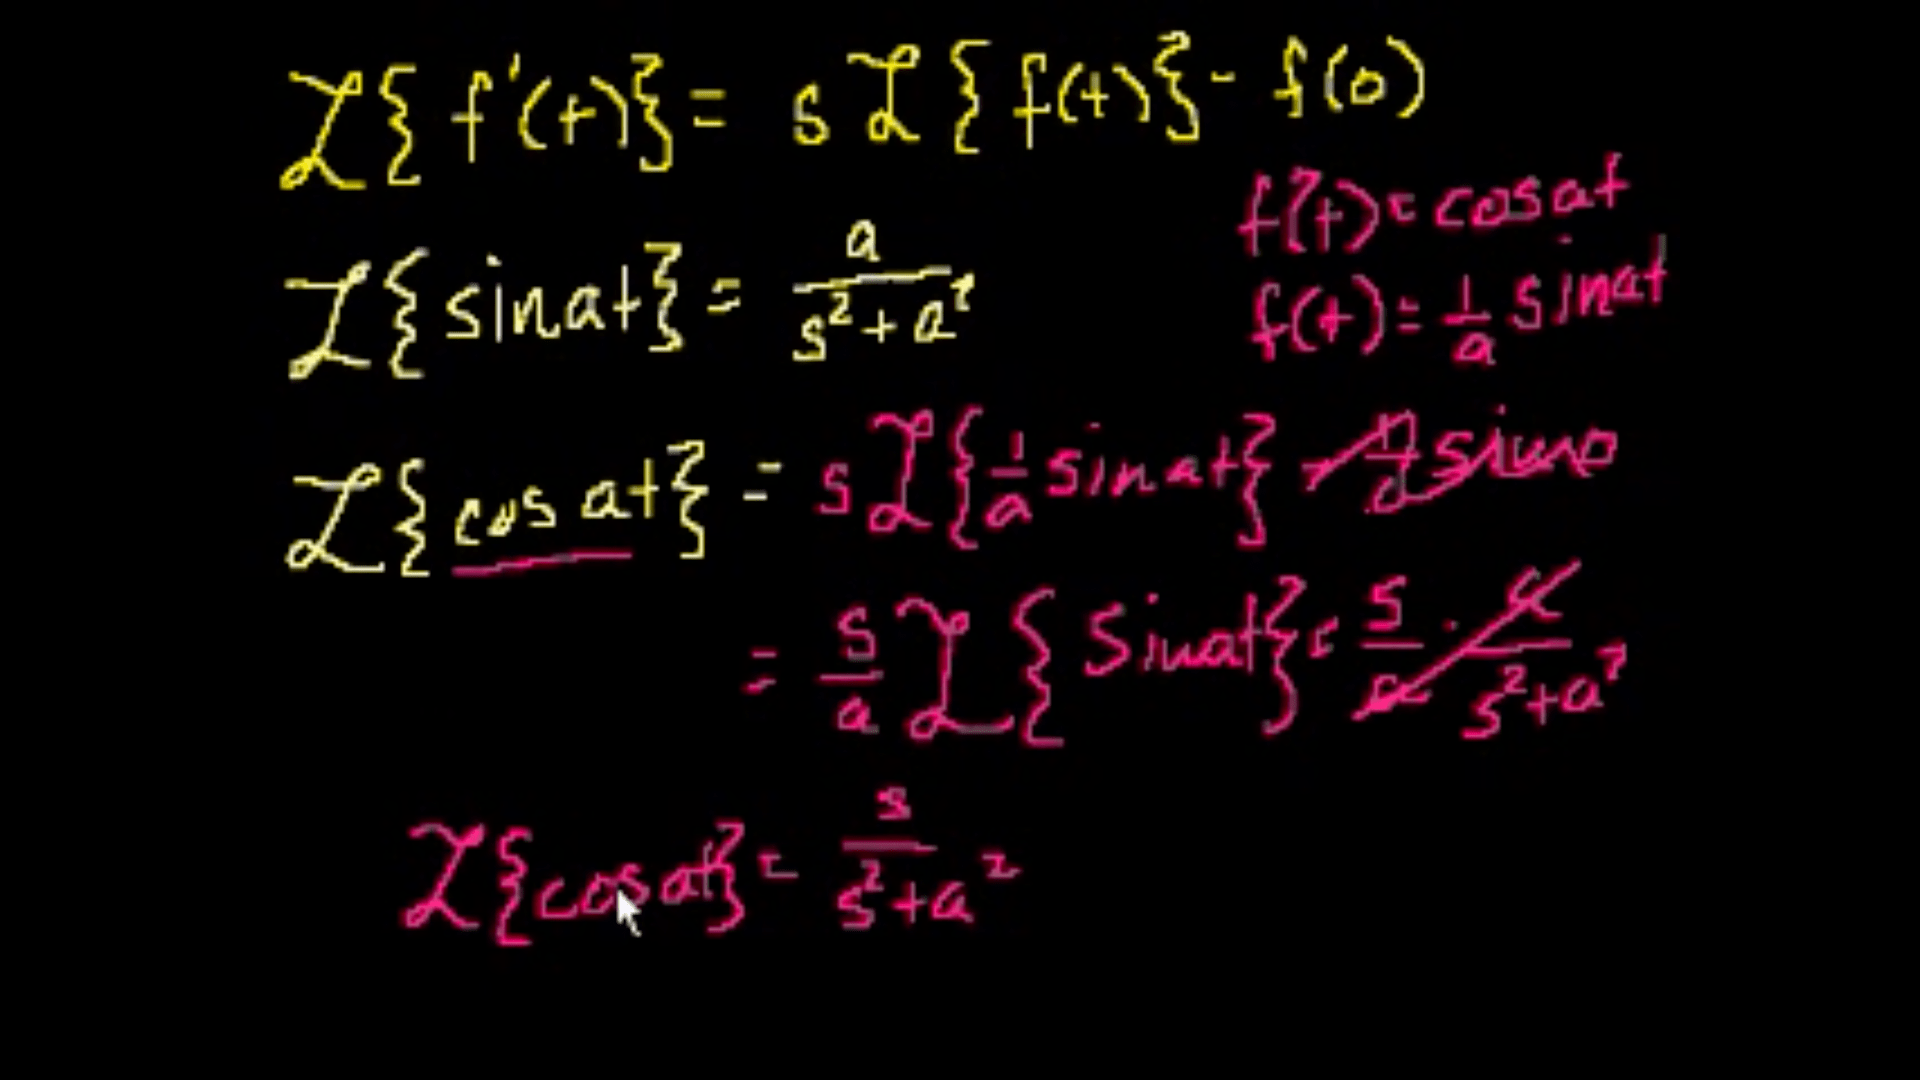 ℒ{f'(t)} = sℒ{f(t)} - f(0)
f'(t) = cosat
ℒ{sinat} = a/(s²+a²)
f(t) = 1/a sinat
ℒ{cos at} = sℒ{1/a sinat} - 1/a sin0
= s/a ℒ{sinat} = s/a · a/(s²+a²)
ℒ{cosat} = s/(s²+a²)